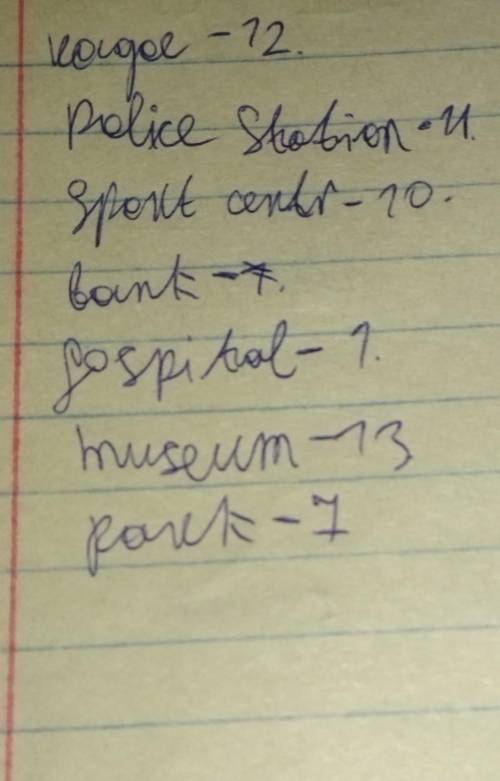 - 12.
Police Station - 11.
Sport centr - 10.
bank - 7.
gospital - 1.
museum - 13
park - 7